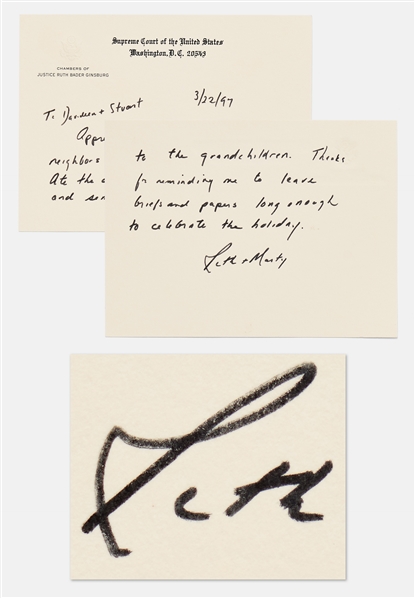 Supreme Court of the United States
Washington, D.C. 20543
CHAMBERS OF
JUSTICE RUTH BADER GINSBURG
3/22/97
To + Stuart
neighbors
Ate the
and
to the grandchildren. Thanks
for reminding me to leave
briefs and papers long enough
to celebrate the holiday.
Ruth + Marty
Ruth